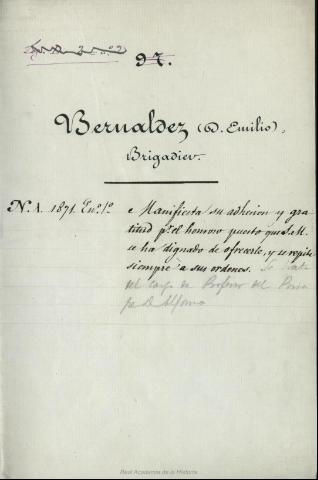 97.
Bernaldez (D. Emilio),
Brigadier.
N.1. 1871. En.º 1.º Manifiesta su adhesion y gra-
titud p.r el honroso puesto que S.M.
se ha dignado de ofrecerle, y se repite
siempre á sus ordenes. Se trata
del cargo de Profesor del Princi-
pe D. Alfonso
Real Academia de la Historia